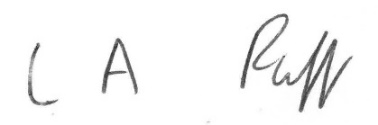 L A Ruff